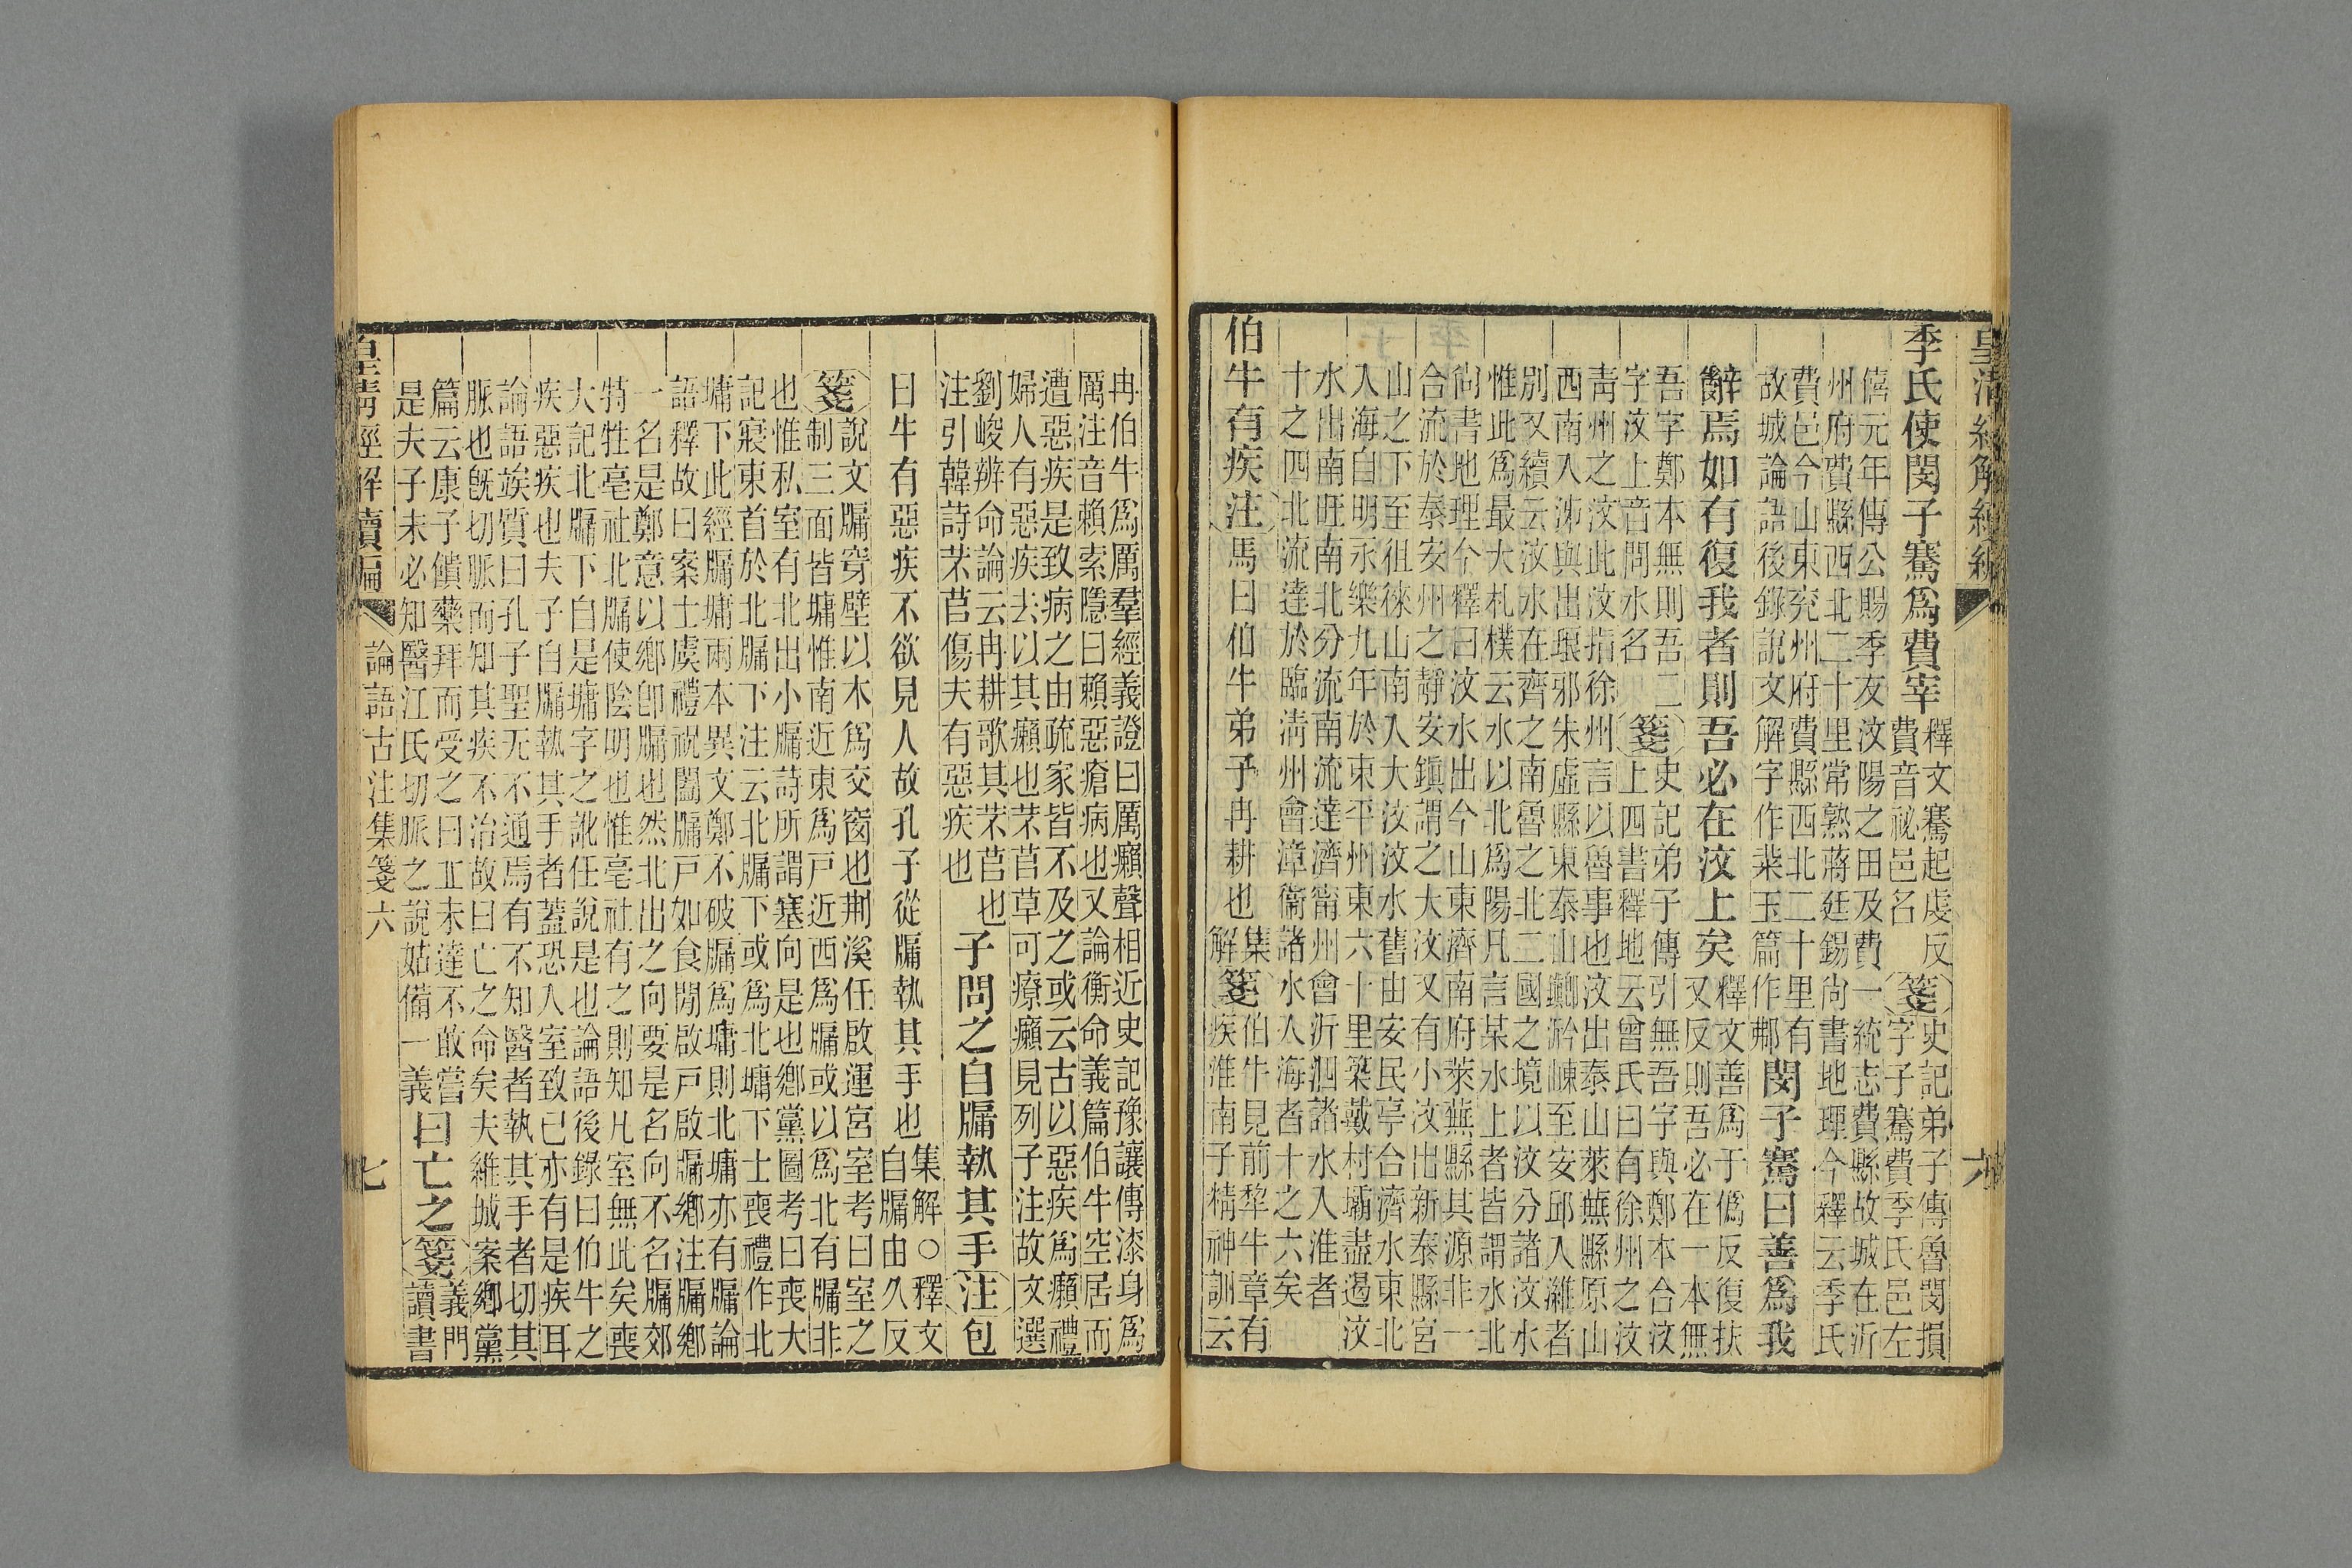 皇清經解續編
六
季氏使閔子騫爲費宰釋文騫起虔反費音祕邑名箋史記弟子傳魯閔損字子騫費季氏邑左
僖元年傳公賜季友汶陽之田及費一統志費縣故城在沂
州府費縣西北二十里常熟蔣廷錫尙書地理今釋云季氏
費邑今山東兖州府費縣西北二十里有
故城論語後錄說文解字作棐玉篇作鄪閔子騫曰善爲我
辭焉如有復我者則吾必在汶上矣釋文善爲于僞反復扶又反則吾必在一本無
吾字鄭本無則吾二
字汶上音問水名箋史記弟子傳引無吾字與鄭本合汶
上四書釋地云曾氏曰有徐州之汶
靑州之汶此汶指徐州言以魯事也汶出泰山萊蕪縣原山
西南入泲與出琅邪朱虛縣東泰山鄺㟂崠至安邱入濰者
別又續云汶水在齊之南魯之北二國之境以汶分諸汶水
惟此爲最大札樸云水以北爲陽凡言某水上者皆謂水北
尙書地理今釋曰汶水出今山東濟南府萊蕪縣其源非一
合流於泰安州之靜安鎭謂之大汶又有小汶出新泰縣宮
山之下至徂徠山南入大汶汶水舊由安民亭合濟水東北
入海自明永樂九年於東平州東六十里築戴村壩盡遏汶
水出南旺南北分流南流達濟甯州會沂泗諸水入淮者
十之四北流達於臨淸州會漳衞諸水入海者十之六矣
伯牛有疾注馬曰伯牛弟子冉耕也集解箋伯牛見前犂牛章有疾淮南子精神訓云
冉伯牛爲厲羣經義證曰厲癩聲相近史記豫讓傳漆身爲
厲注音賴索隱曰賴惡瘡病也又論衡命義篇伯牛空居而
遭惡疾是致病之由疏家皆不及之或云古以惡疾爲癩禮
婦人有惡疾去以其癩也芣苢草可療癩見列子注故文選
劉峻辨命論云冉耕歌其芣苢也
注引韓詩芣苢傷夫有惡疾也子問之自牖執其手注包
曰牛有惡疾不欲見人故孔子從牖執其手也集解○釋文自牖由久反
箋說文牖穿壁以木爲交窗也荆溪任啟運宮室考曰室之
制三面皆墉惟南近東爲戶近西爲牖或以爲北有牖非
也惟私室有北出小牖詩所謂塞向是也鄉黨圖考曰喪大
記寢東首於北牖下注云北牖下或爲北墉下士喪禮作北
墉下此經牖墉兩本異文鄭不破牖爲墉則北墉亦有牖論
語釋故曰案士虞禮祝闔牖戶如食閒啟戶啟牖鄉注牖鄉
一名是鄭意以鄉卽牖也然北出之向要是名向不名牖郊
特牲亳社北牖使陰明也惟亳社有之則知凡室無此矣喪
大記北牖下自是墉字之訛任說是也論語後錄曰伯牛之
疾惡疾也夫子自牖執其手者蓋恐人室致己亦有是疾耳
論語竢質曰孔子聖无不通焉有不知醫者執其手者切其
脈也旣切脈而知其疾不治故曰亡之命矣夫維城案鄉黨
篇云康子饋藥拜而受之曰丘未達不敢嘗
是夫子未必知醫江氏切脈之說姑備一義曰亡之箋義門讀書
皇清經解續編
論語古注集箋六
七